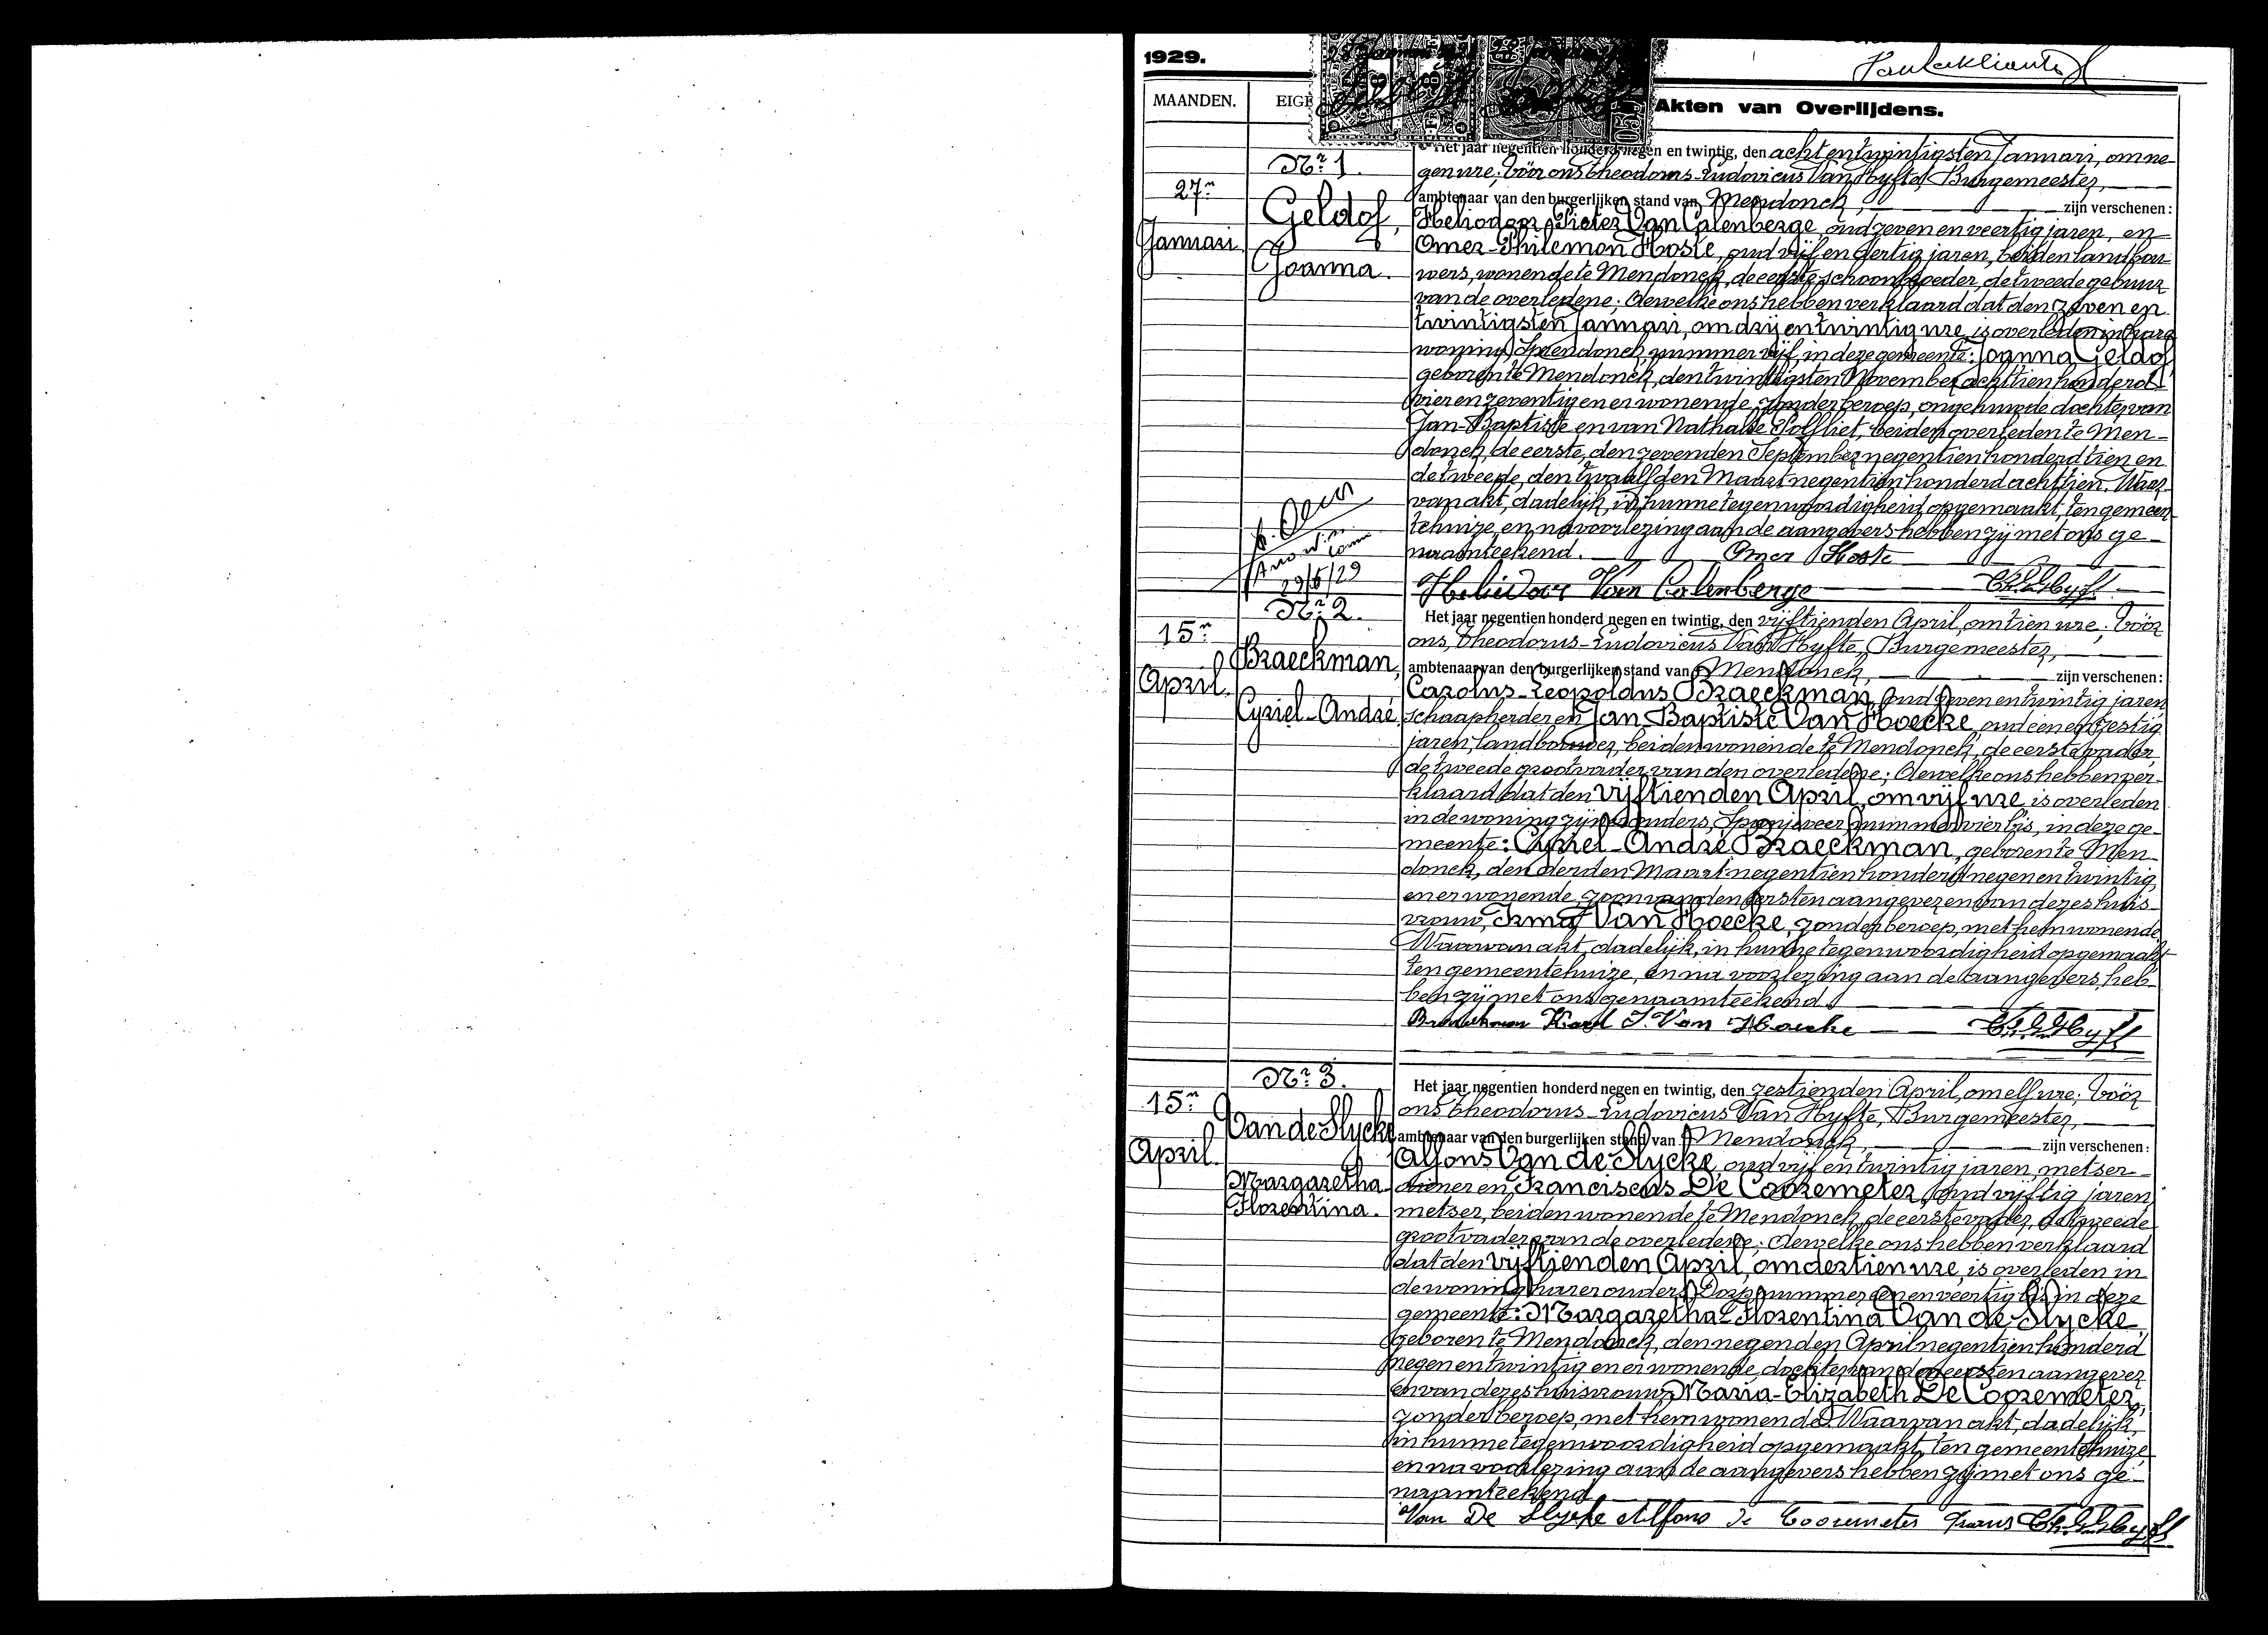 1929.
MAANDEN.
Akten van Overlijdens.
Nr. 1.
27n
Januari
Geldof,
Joanna.
Het jaar negentien honderd negen en twintig, den acht en twintigsten Januari, om ne-
gen ure; vóór ons Theodorus-Ludovicus Van Hyfte, Burgemeester,
ambtenaar van den burgerlijken stand van Mendonck, zijn verschenen:
Heliodoor Pieter Van Calenberge, oud zeven en veertig jaren, en
Omer-Philemon Hoste, oud vijf en dertig jaren, beiden landbou-
wers, wonende te Mendonck, de eerste schoonbroeder, de tweede gebuur
van de overledene; dewelke ons hebben verklaard dat den zeven en
twintigsten Januari, om drij en twintig ure, is overleden in hare
woning, Spendonck nummer vijf, in deze gemeente: Joanna Geldof,
geboren te Mendonck, den twintigsten November achttien honderd
vier en zeventig en er wonende, zonder beroep, ongehuwde dochter van
Jan-Baptiste en van Nathalie Solfliet, beiden overleden te Men-
donck, de eerste, den zevenden September negentien honderd tien en
de tweede, den twaalfden Maart negentien honderd achttien. Waar-
van akt, dadelijk, in hunne tegenwoordigheid opgemaakt, ten gemeen-
tehuize, en na voorlezing aan de aangevers hebben zij met ons ge-
naamteekend. Omer Hoste
29/6/29
Heliodoor Van Calenberge
Nr. 2.
15n
April.
Braeckman,
Cyriel-André
Het jaar negentien honderd negen en twintig, den vijftienden April, om tien ure; vóór
ons, Theodorus-Ludovicus Van Hyfte, Burgemeester,
ambtenaar van den burgerlijken stand van Mendonck, zijn verschenen:
Carolus-Leopoldus Braeckman, oud zeven en twintig jaren
schaapherder en Jan Baptiste Van Hoecke, oud een en zestig
jaren, landbouwer, beiden wonende te Mendonck, de eerste vader,
de tweede grootvader van den overledene; dewelke ons hebben ver-
klaard dat den vijftienden April, om vijf ure, is overleden
in de woning zijner ouders, Spanjeveer nummer vier bis, in deze ge-
meente: Cyriel-André Braeckman, geboren te Men-
donck, den derden Maart negentien honderd negen en twintig,
en er wonende, zoon van den eersten aangever en van dezes huis-
vrouw, Irma Van Hoecke, zonder beroep, met hem wonende
Waarvan akt, dadelijk, in hunne tegenwoordigheid opgemaakt
ten gemeentehuize, en na voorlezing aan de aangevers, heb-
ben zij met ons genaamteekend.
Braeckman Karel J. Van Hoecke
Nr. 3.
15n
April.
Van de Slycke
Margaretha
Florentina.
Het jaar negentien honderd negen en twintig, den zestienden April, om elf ure; vóór
ons Theodorus-Ludovicus Van Hyfte, Burgemeester,
ambtenaar van den burgerlijken stand van Mendonck, zijn verschenen:
Alfons Van de Slycke, oud vijf en twintig jaren, metser-
diener en Franciscus De Cooremeter, oud vijftig jaren,
metser, beiden wonende te Mendonck, de eerste vader, de tweede
grootvader van de overledene; dewelke ons hebben verklaard
dat den vijftienden April, om dertien ure, is overleden in
de woning harer ouders, Dorp nummer een en veertig bis in deze
gemeente: Margaretha-Florentina Van de Slycke,
geboren te Mendonck, den negenden April negentien honderd
negen en twintig en er wonende, dochter van den eersten aangever
en van dezes huisvrouw, Maria-Elizabeth De Cooremeter,
zonder beroep, met hem wonende. Waarvan akt, dadelijk,
in hunne tegenwoordigheid opgemaakt, ten gemeentehuize
en na voorlezing aan de aangevers hebben zij met ons ge-
naamteekend
Van De Slycke Alfons De Cooremeter Frans